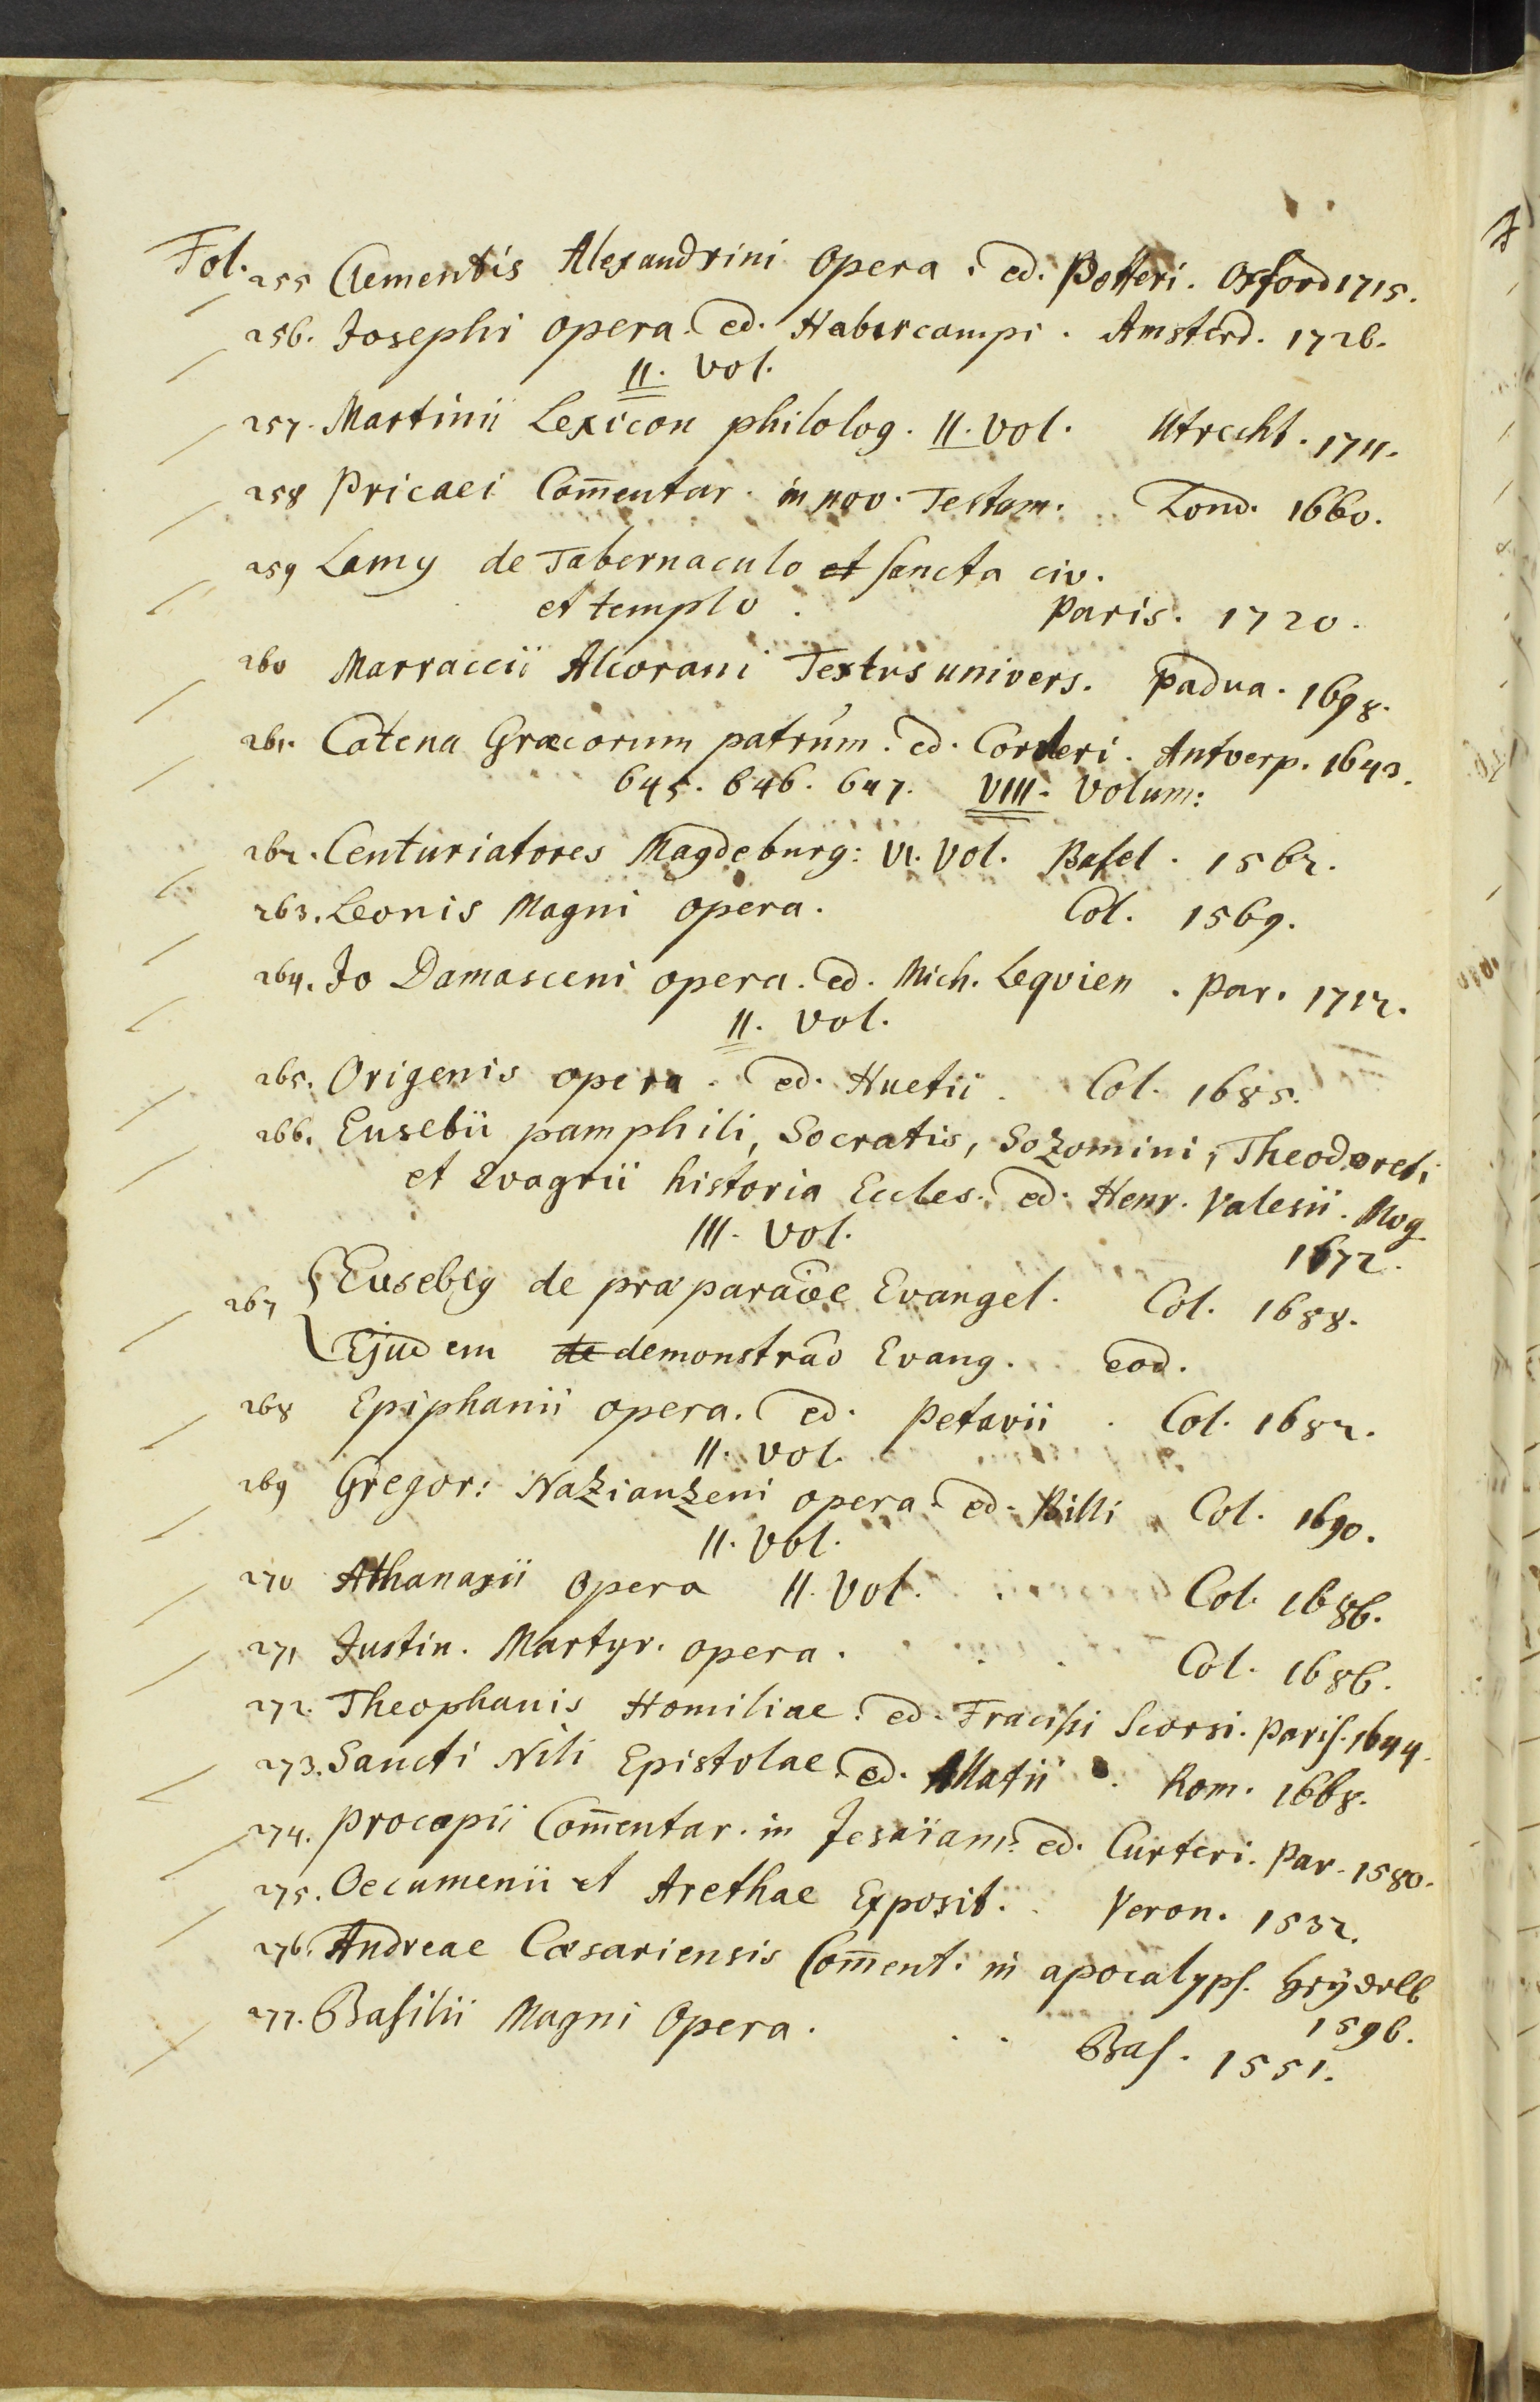 Fol. 255 Clementis Alexandrini Opera. ed. Potteri. Oxford 1715.
256. Josephi opera. ed. Habercampi. Amsterd. 1726.
II. vol.
257. Martinii Lexicon philolog. II. vol. Utrecht. 1711.
258 Pricaei Com̅entar. in nov. Testam. Lond. 1660.
259 Lamy de Tabernaculo et sancta civ.
et templo. Paris. 1720.
260 Marraccii Alcorani Textus univers. Padua. 1698.
261. Catena Græcorum patrum. ed. Corderi. Antverp. 1643.
645. 646. 647. VIII. Volum:
262. Centuriatores Magdeburg: VI. Vol. Basel. 1562.
263. Leonis Magni opera. Col. 1569.
264. Jo Damasceni opera. ed. Mich. Leqvien. Par. 1712.
II. vol.
265. Origenis opera. ed. Huetii. Col. 1685.
266. Eusebii pamphili, Socratis, Sozomini, Theodoreti
et Evagrii historia Eccles. ed. Henr. Valesii. Mog
III. vol. 1672.
267 Eusebig de præparaōe Evangel. Col. 1688.
Ejudem de demonstraō Evang. eod.
268 Epiphanii opera. ed. Petavii. Col. 1682.
II. vol.
269 Gregor: Nazianzeni opera. ed. Billi Col. 1690.
II. Vol.
270 Athanasii Opera II. Vol. Col. 1686.
271 Justin. Martyr. opera. Col. 1686.
272. Theophanis Homiliae. ed. Fracisci Scorsi. Paris. 1644.
273. Sancti Nili Epistolae. ed. Allatii. Rom. 1668.
274. Procopii Com̅entar. in Jesaiam. ed. Curteri. Par. 1580.
275. Oecumenii et Arethae Exposit. Veron. 1532.
276. Andreae Cæsariensis Com̅ent. in apocalyps. Heydelb
1596.
277. Basilii Magni Opera. Bas. 1551.